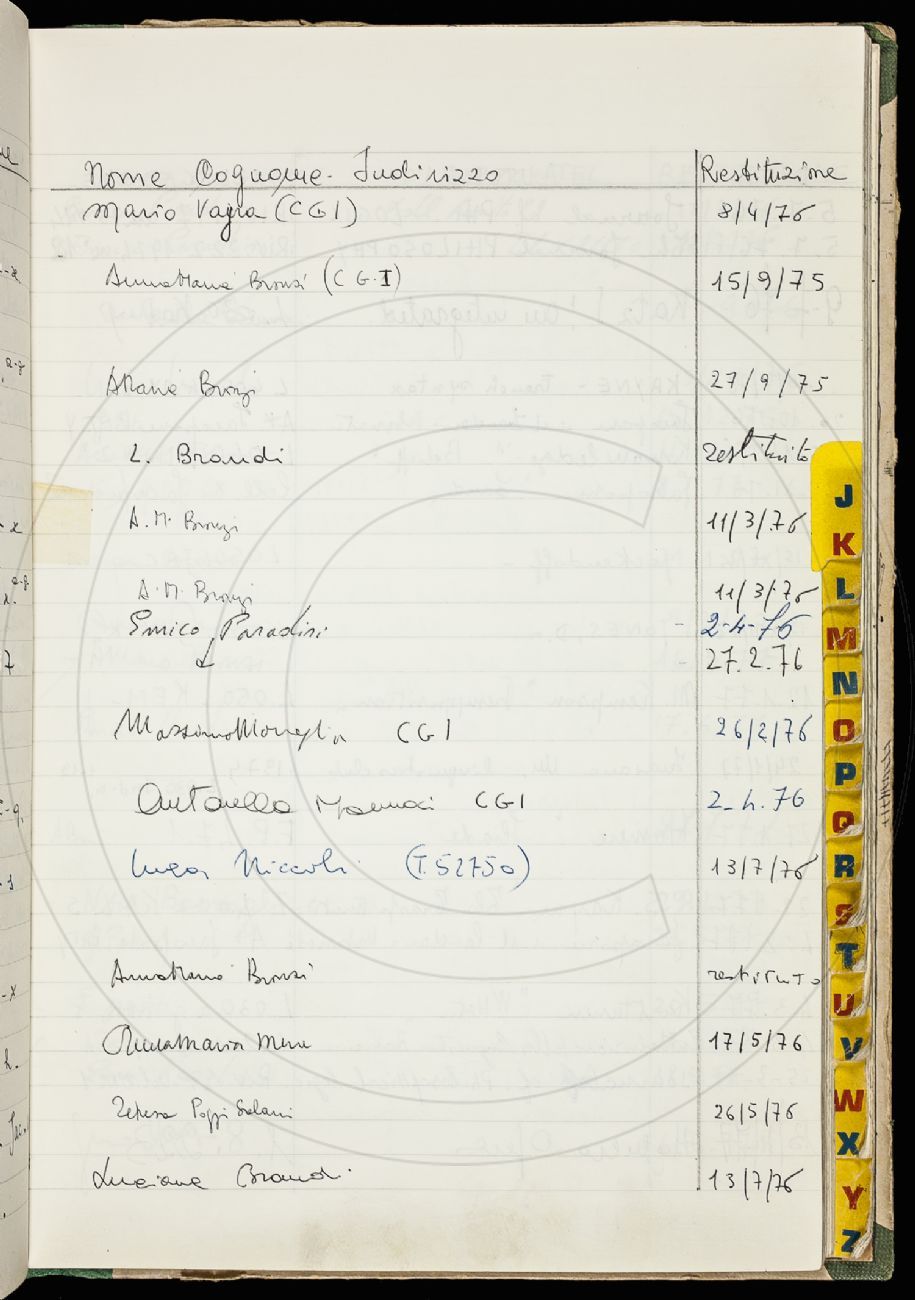 Nome Cognome - Indirizzo Restituzione
Mario Vayra (CGI) 8/4/76
AnnaMaria Bronzi (CGI) 15/9/75
AMaria Bronzi 27/9/75
L. Brandi restituito
A.M. Bronzi 11/3/76
A.M. Bronzi 11/3/76
Enrico Paradisi - 2-4-76
↓ - 27.2.76
Massimo Moneglia CGI 26/2/76
Antonella CGI 2-4.76
Luca Niccoli (T. 52750) 13/7/76
AnnaMaria Bronzi restituito
AnnaMaria 17/5/76
Teresa Poggi Salani 26/5/76
Luciana Brandi 13/7/76
J
K
L
M
N
O
P
Q
R
S
T
U
V
W
X
Y
Z